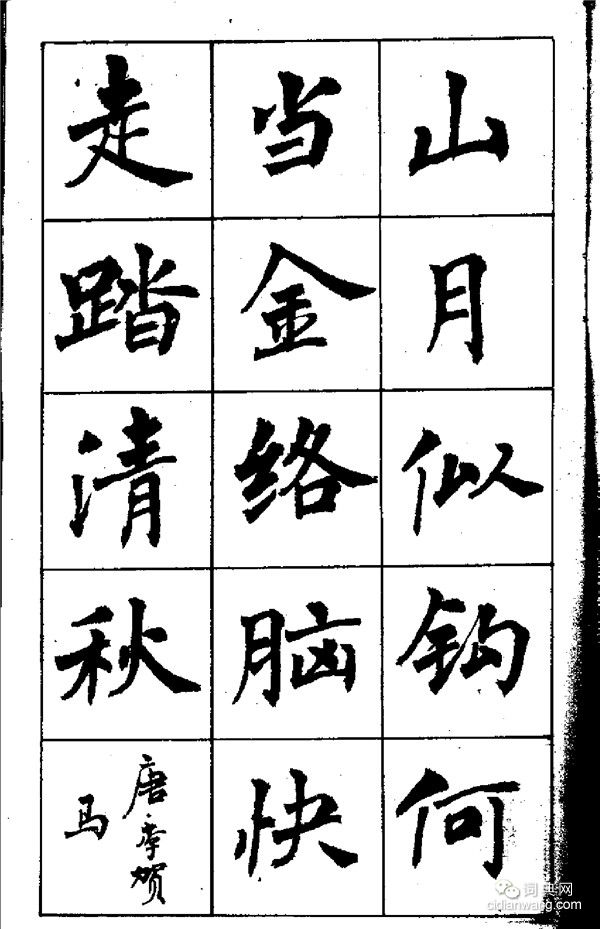 山月似钩何
当金络脑快
走踏清秋
唐·李贺
马
词典网
cidianwang.com